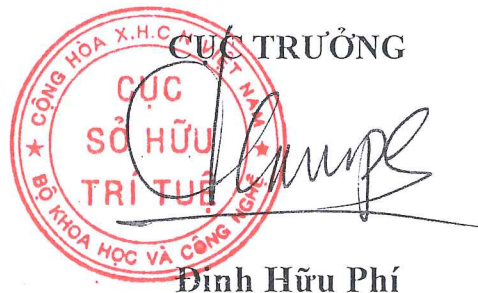 CỤC TRƯỞNG
CỘNG HÒA X.H.C.N VIỆT NAM
CỤC
SỞ HỮU
TRÍ TUỆ
★ BỘ KHOA HỌC VÀ CÔNG NGHỆ ★
Đinh Hữu Phí